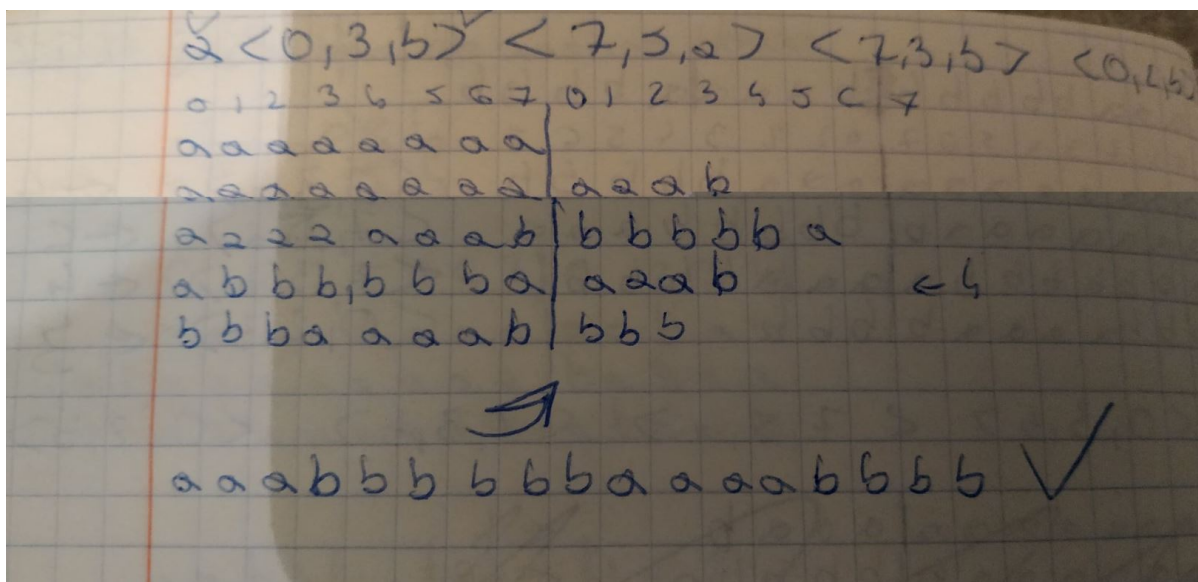 a <0,3,b> <7,5,a> <7,3,b> <0,2,b>
0 1 2 3 4 5 6 7 0 1 2 3 4 5 6 7
a a a a a a a a
a a a a a a a a a a a b
a a a a a a a b b b b b b a
a b b b b b b a a a a b ← 4
b b b a a a a b b b b
a a a b b b b b b a a a a b b b b ✓